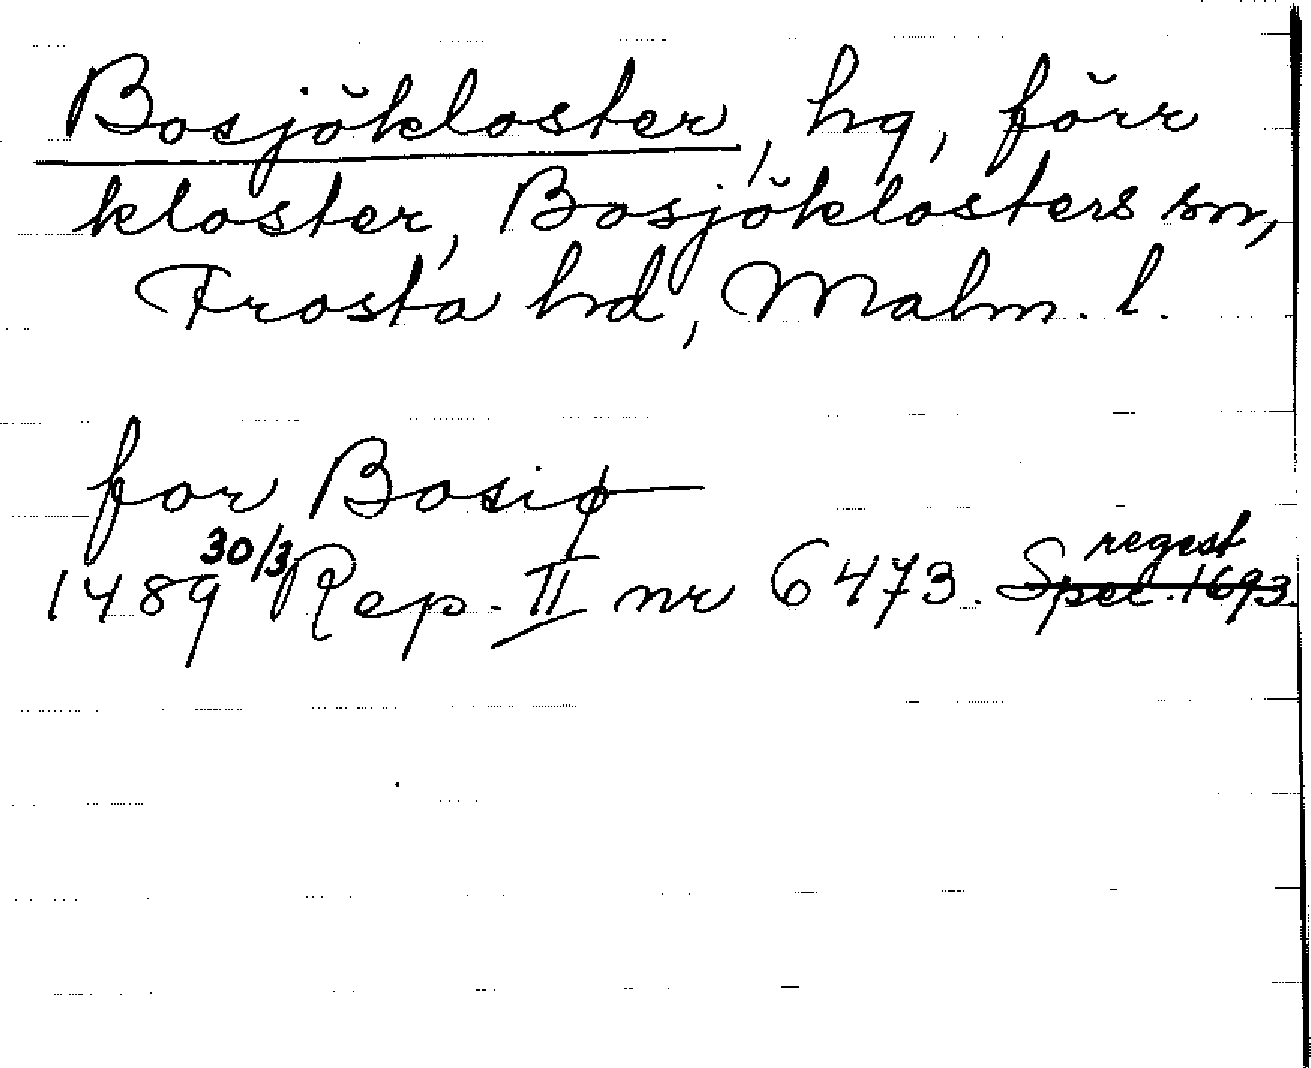 Bosjökloster, hg, förr
kloster, Bosjöklosters sn,
Frosta hd, Malm. l.
for Bosiø
1489 30/3 Rep. II nr 6473. regest
Spec. 1693.